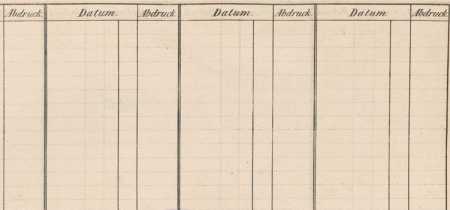 Abdruck. Datum. Abdruck. Datum. Abdruck. Datum. Abdruck.